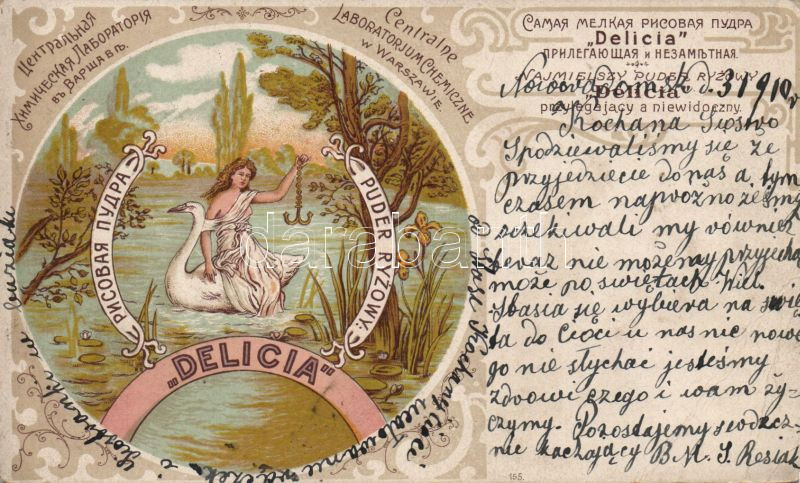 Центральная
Химическая Лабораторія
въ Варшавѣ.
Centralne
Laboratorium Chemiczne
w Warszawie.
РИСОВАЯ ПУДРА
PUDER RYŻOWY.
„DELICIA“
Самая мелкая рисовая пудра
„Delicia“
прилегающая и незамѣтная.
Najmielszy puder ryżowy
przylegający a niewidoczny.
d. 3 1910 r
Kochana
Spodziewaliśmy się że
przyjedziecie do nas a tym
czasem napróżno żeśmy
oczekiwali my również
teraz nie możemy przyjecha
może po świętach
Stasia się wybiera na świę
ta do Cioci u nas nic nowe
go nie słychać jesteśmy
zdrowi czego i wam ży
czymy. Pozostajemy serdecz
nie B. M. S. Resiak
155.
darabanth